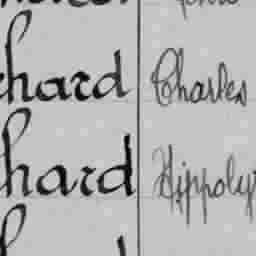 hard Charles
hard Hippoly